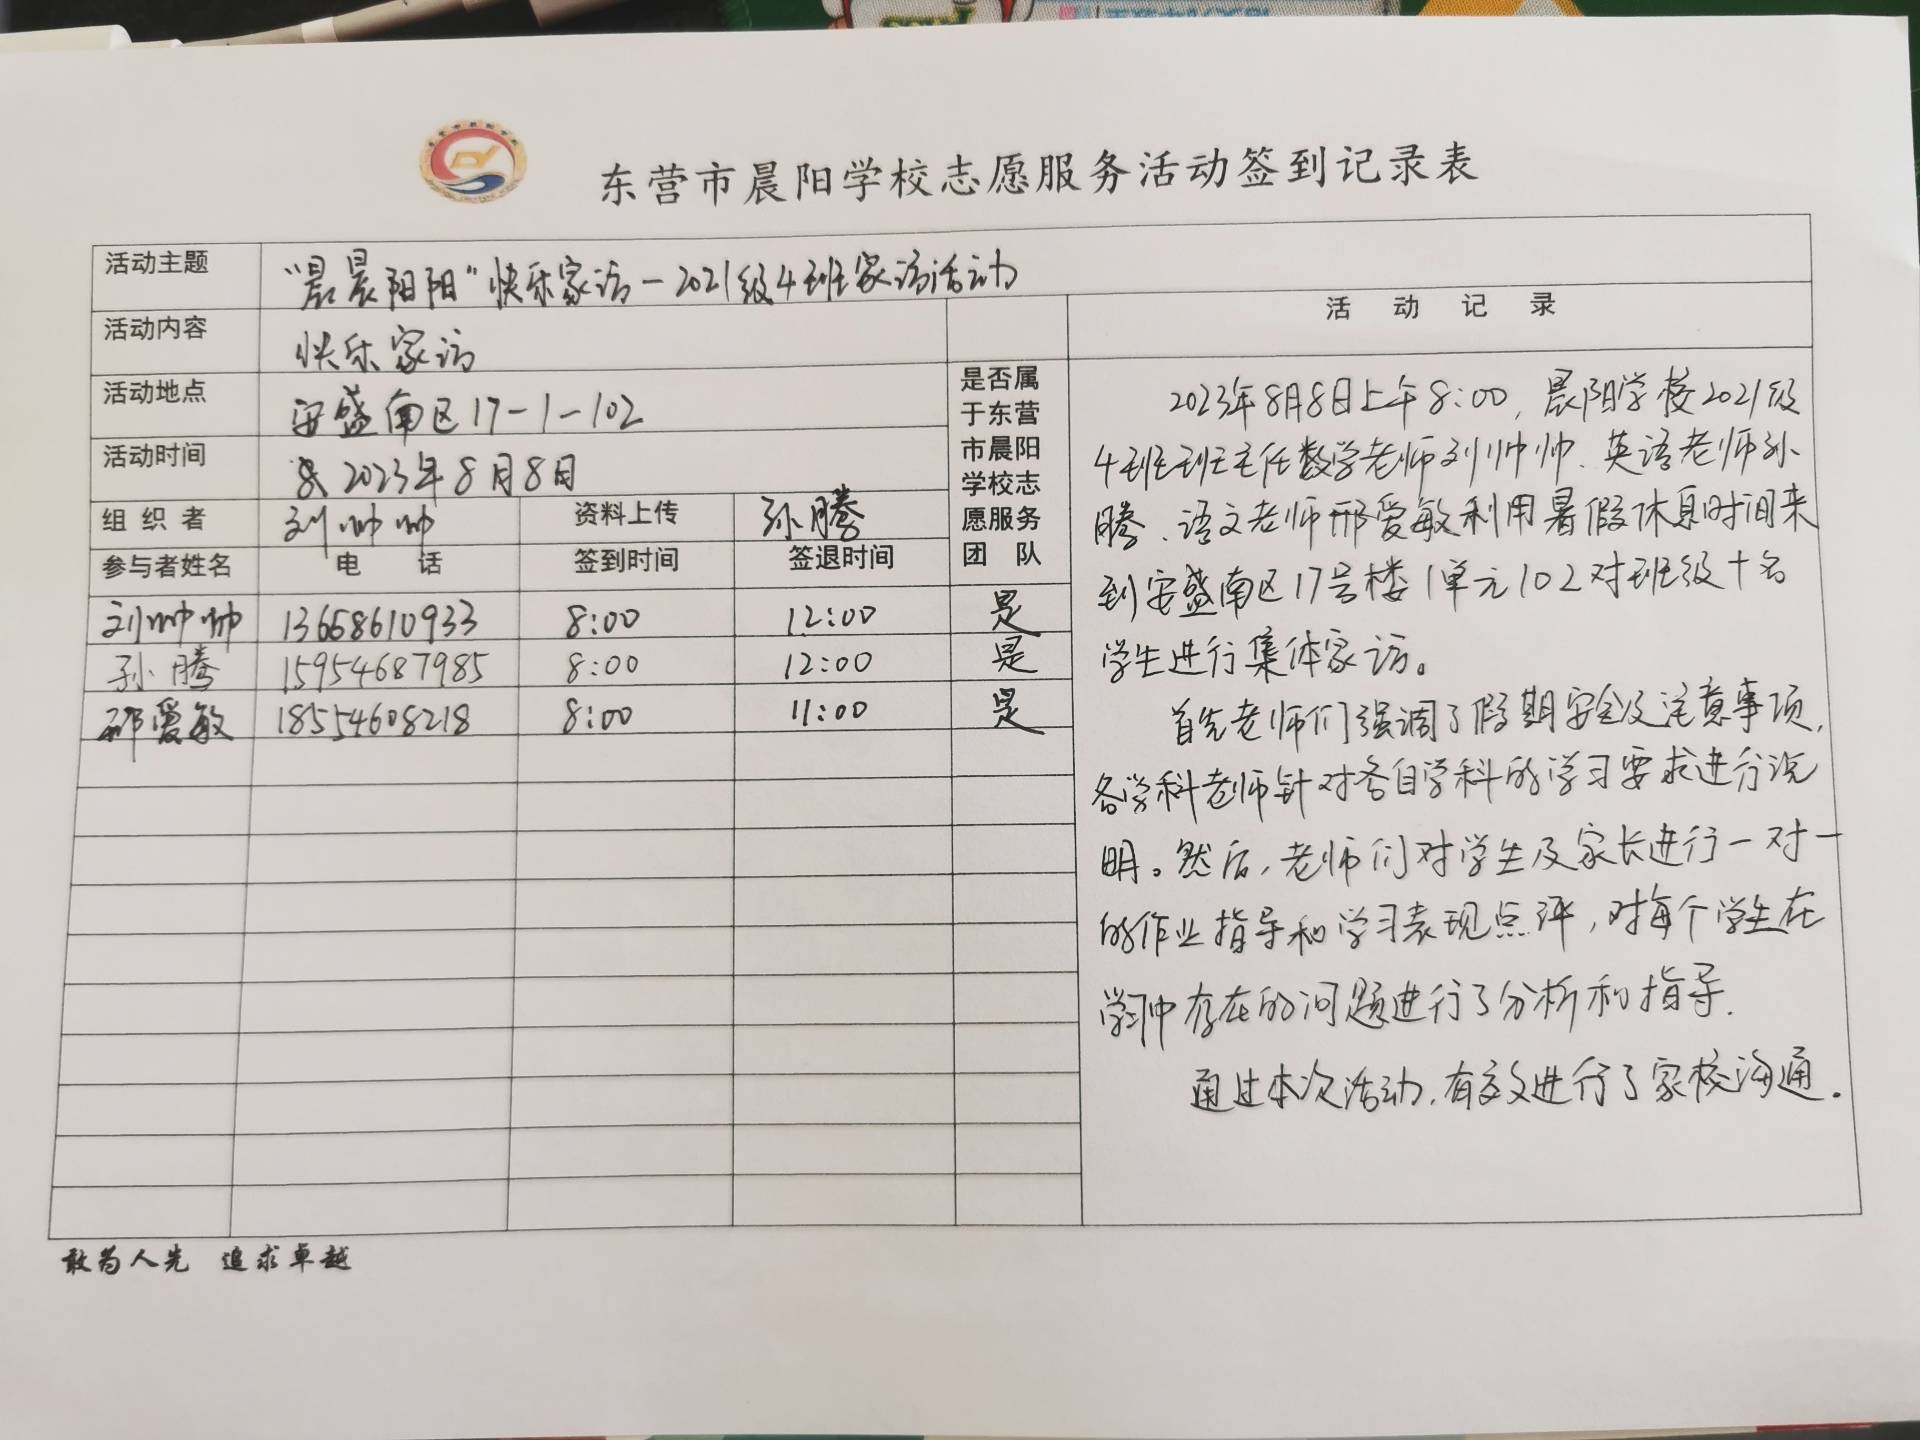 东营市晨阳学校志愿服务活动签到记录表
活动主题 “晨晨阳阳”快乐家访－2021级4班家访活动
活动内容 快乐家访
活动地点 安盛南区17-1-102
活动时间 2023年8月8日
组织者 刘帅帅 资料上传 孙腾
参与者姓名 电话 签到时间 签退时间
是否属
于东营
市晨阳
学校志
愿服务
团队
刘帅帅 13658610933 8:00 12:00 是
孙腾 15954687985 8:00 12:00 是
邢爱敏 18554608218 8:00 11:00 是
活动记录
2023年8月8日上午8:00,晨阳学校2021级
4班班主任数学老师刘帅帅、英语老师孙
腾、语文老师邢爱敏利用暑假休息时间来
到安盛南区17号楼1单元102对班级十名
学生进行集体家访。
首先老师们强调了假期安全及注意事项,
各学科老师针对各自学科的学习要求进行说
明。然后,老师们对学生及家长进行一对一
的作业指导和学习表现点评,对每个学生在
学习中存在的问题进行了分析和指导.
通过本次活动,有效进行了家校沟通。
敢为人先 追求卓越